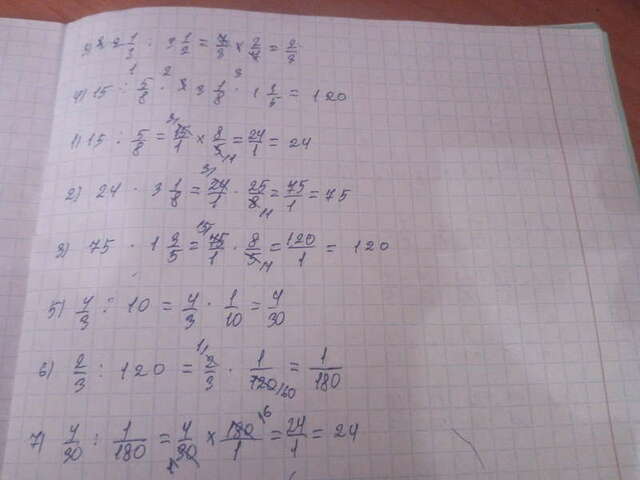 3) 2 1/3 : 3 1/2 = 7/3 × 2/7 = 2/3
1 2 3
4) 15 : 5/8 · 3 1/8 · 1 3/5 = 120
1) 15 : 5/8 = 15/1 × 8/5 = 24/1 = 24
2) 24 · 3 1/8 = 24/1 · 25/8 = 75/1 = 75
3) 75 · 1 3/5 = 75/1 · 8/5 = 120/1 = 120
5) 4/3 : 10 = 4/3 · 1/10 = 4/30
6) 2/3 : 120 = 2/3 · 1/120 = 1/180
7) 4/30 : 1/180 = 4/30 × 180/1 = 24/1 = 24